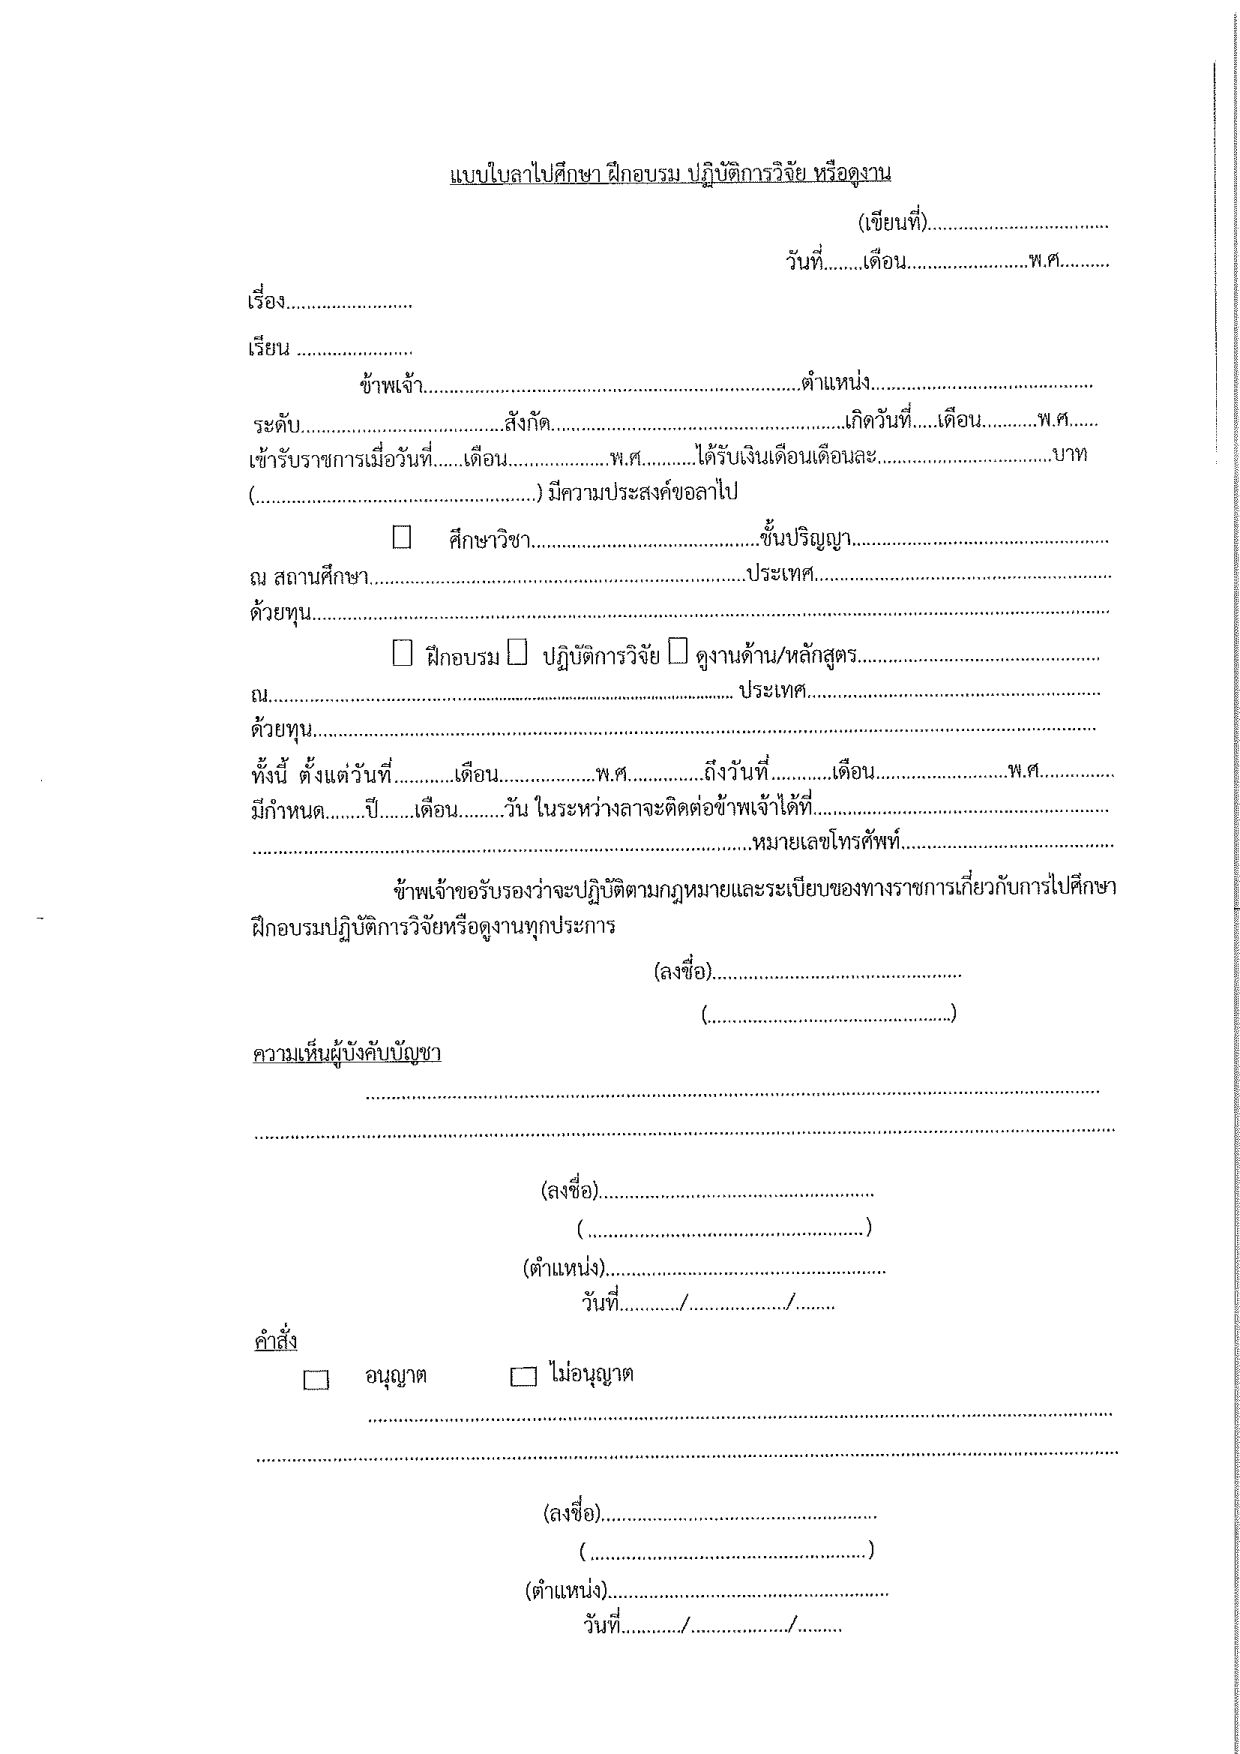 แบบใบลาไปศึกษา ฝึกอบรม ปฏิบัติการวิจัย หรือดูงาน
(เขียนที่)...................................
วันที่........เดือน........................พ.ศ..........
เรื่อง.........................
เรียน .......................
ข้าพเจ้า..........................................................................ตำแหน่ง............................................
ระดับ........................................สังกัด..........................................................เกิดวันที่.....เดือน...........พ.ศ......
เข้ารับราชการเมื่อวันที่......เดือน....................พ.ศ...........ได้รับเงินเดือนเดือนละ..................................บาท
(.......................................................) มีความประสงค์ขอลาไป
☐ ศึกษาวิชา.............................................ชั้นปริญญา..................................................
ณ สถานศึกษา..........................................................................ประเทศ..........................................................
ด้วยทุน............................................................................................................................................................
☐ ฝึกอบรม ☐ ปฏิบัติการวิจัย ☐ ดูงานด้าน/หลักสูตร...............................................
ณ........................................................................................... ประเทศ.........................................................
ด้วยทุน.........................................................................................................................................................
ทั้งนี้ ตั้งแต่วันที่............เดือน...................พ.ศ...............ถึงวันที่............เดือน..........................พ.ศ...............
มีกำหนด........ปี.......เดือน.........วัน ในระหว่างลาจะติดต่อข้าพเจ้าได้ที่..........................................................
..................................................................................................หมายเลขโทรศัพท์..........................................
ข้าพเจ้าขอรับรองว่าจะปฏิบัติตามกฎหมายและระเบียบของทางราชการเกี่ยวกับการไปศึกษา
ฝึกอบรมปฏิบัติการวิจัยหรือดูงานทุกประการ
(ลงชื่อ).................................................
(................................................)
ความเห็นผู้บังคับบัญชา
................................................................................................................................................
..........................................................................................................................................................................
(ลงชื่อ)......................................................
( ......................................................)
(ตำแหน่ง).......................................................
วันที่............/.................../........
คำสั่ง
☐ อนุญาต ☐ ไม่อนุญาต
..................................................................................................................................................
..........................................................................................................................................................................
(ลงชื่อ)......................................................
( ......................................................)
(ตำแหน่ง).......................................................
วันที่............/.................../.........